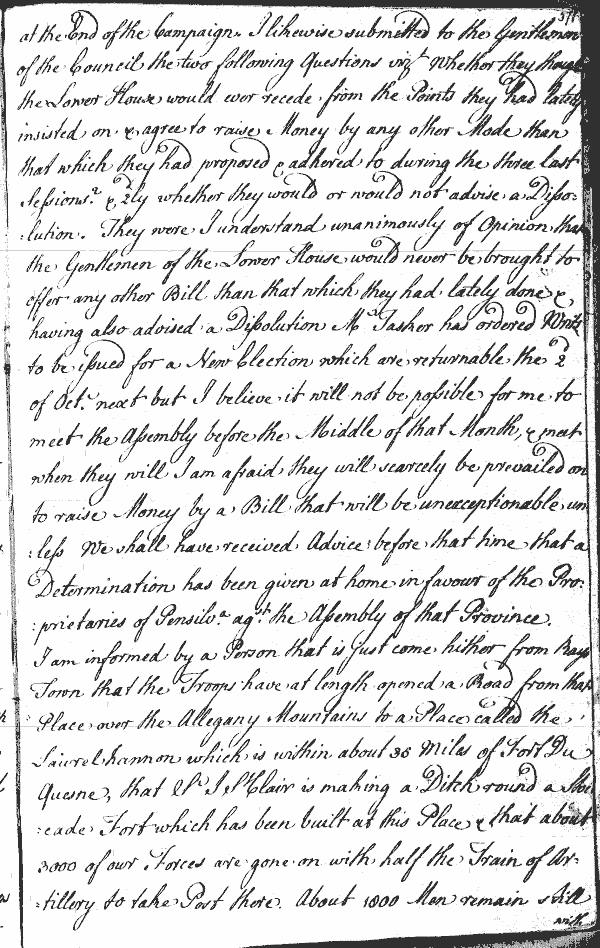 at the End of the Campaign. I likewise submitted to the Gentlemen
of the Council the two following Questions vizt. Whether they thought
the Lower House would ever recede from the Points they had lately
insisted on & agree to raise Money by any other Mode than
that which they had proposed & adhered to during the three last
Sessions. & 2dly whether they would or would not advise a Disso-
:lution. They were I understand unanimously of Opinion that
the Gentlemen of the Lower House would never be brought to
offer any other Bill than that which they had lately done &
having also advised a Dissolution Mr. Tasker has ordered Writs
to be issued for a New Election which are returnable the 2d
of Octr. next but I believe it will not be possible for me to
meet the Assembly before the Middle of that Month, & meet
when they will I am afraid they will scarcely be prevailed on
to raise Money by a Bill that will be unexceptionable un
:less We shall have received Advice before that time that a
Determination has been given at home in favour of the Pro:
:prietaries of Pensilva. agst. the Assembly of that Province.
I am informed by a Person that is just come hither from Rays
Town that the Troops have at length opened a Road from that
Place over the Allegany Mountains to a Place called the
Laurel hannon which is within about 36 Miles of Fort Du
Quesne, that Sr. J St Clair is making a Ditch round a Stoc
:cade Fort which has been built at this Place & that about
3000 of our Forces are gone on with half the Train of Ar-
:tillery to take Post there. About 1800 Men remain still
with